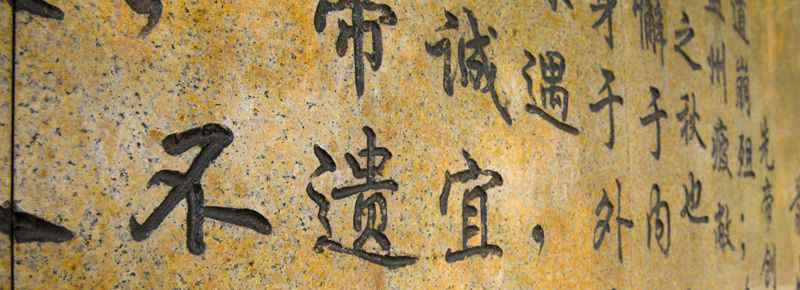 先帝创
道崩殂;
州疲敝
之秋也
懈于内
身于外
遇,
诚宜
帝遺
不